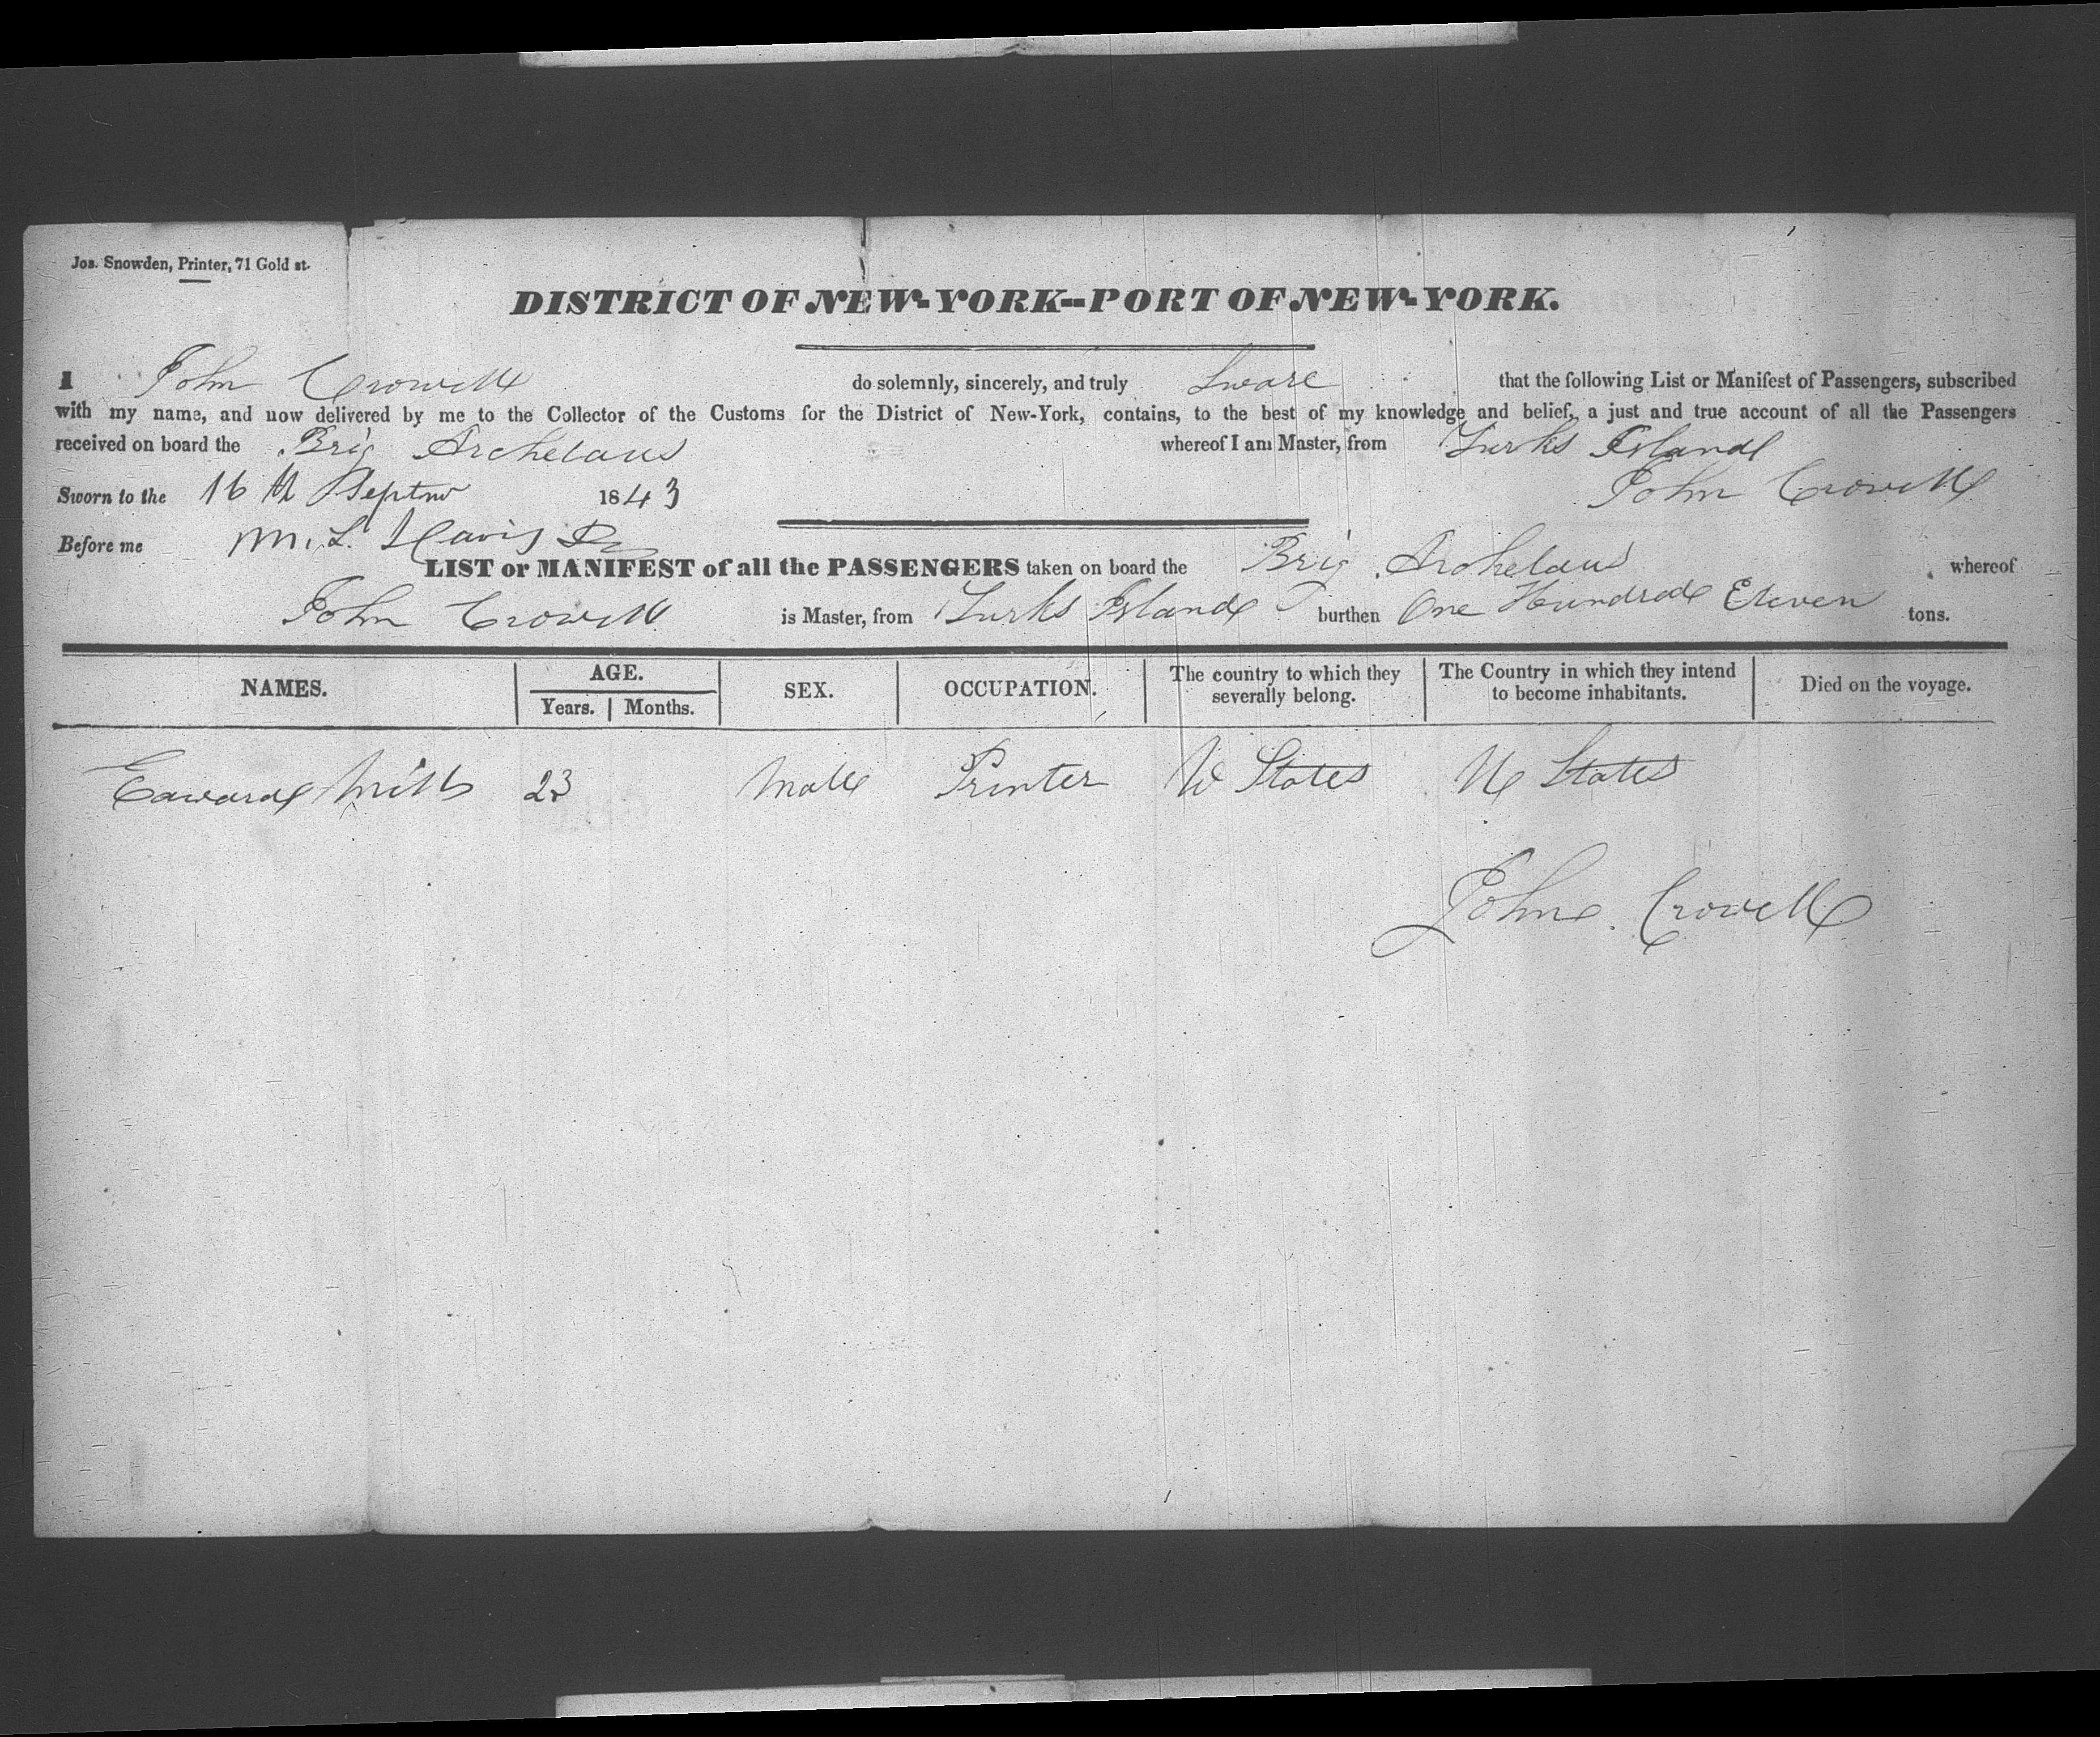 Jos. Snowden, Printer, 71 Gold st.
DISTRICT OF NEW-YORK--PORT OF NEW-YORK.
I John Crowell do solemnly, sincerely, and truly Sware that the following List or Manifest of Passengers, subscribed
with my name, and now delivered by me to the Collector of the Customs for the District of New-York, contains, to the best of my knowledge and belief, a just and true account of all the Passengers
received on board the Brig Archelaus whereof I am Master, from Turks Island
Sworn to the 16 th Septmr 1843 John Crowell
Before me M. L. Davis
LIST or MANIFEST of all the PASSENGERS taken on board the Brig Archelaus whereof
John Crowell is Master, from Turks Island burthen One Hundred Eleven tons.
NAMES. AGE. SEX. OCCUPATION. The country to which they severally belong. The Country in which they intend to become inhabitants. Died on the voyage.
Years. Months.
Edward Mills 23 Male Printer U States U States
John Crowell